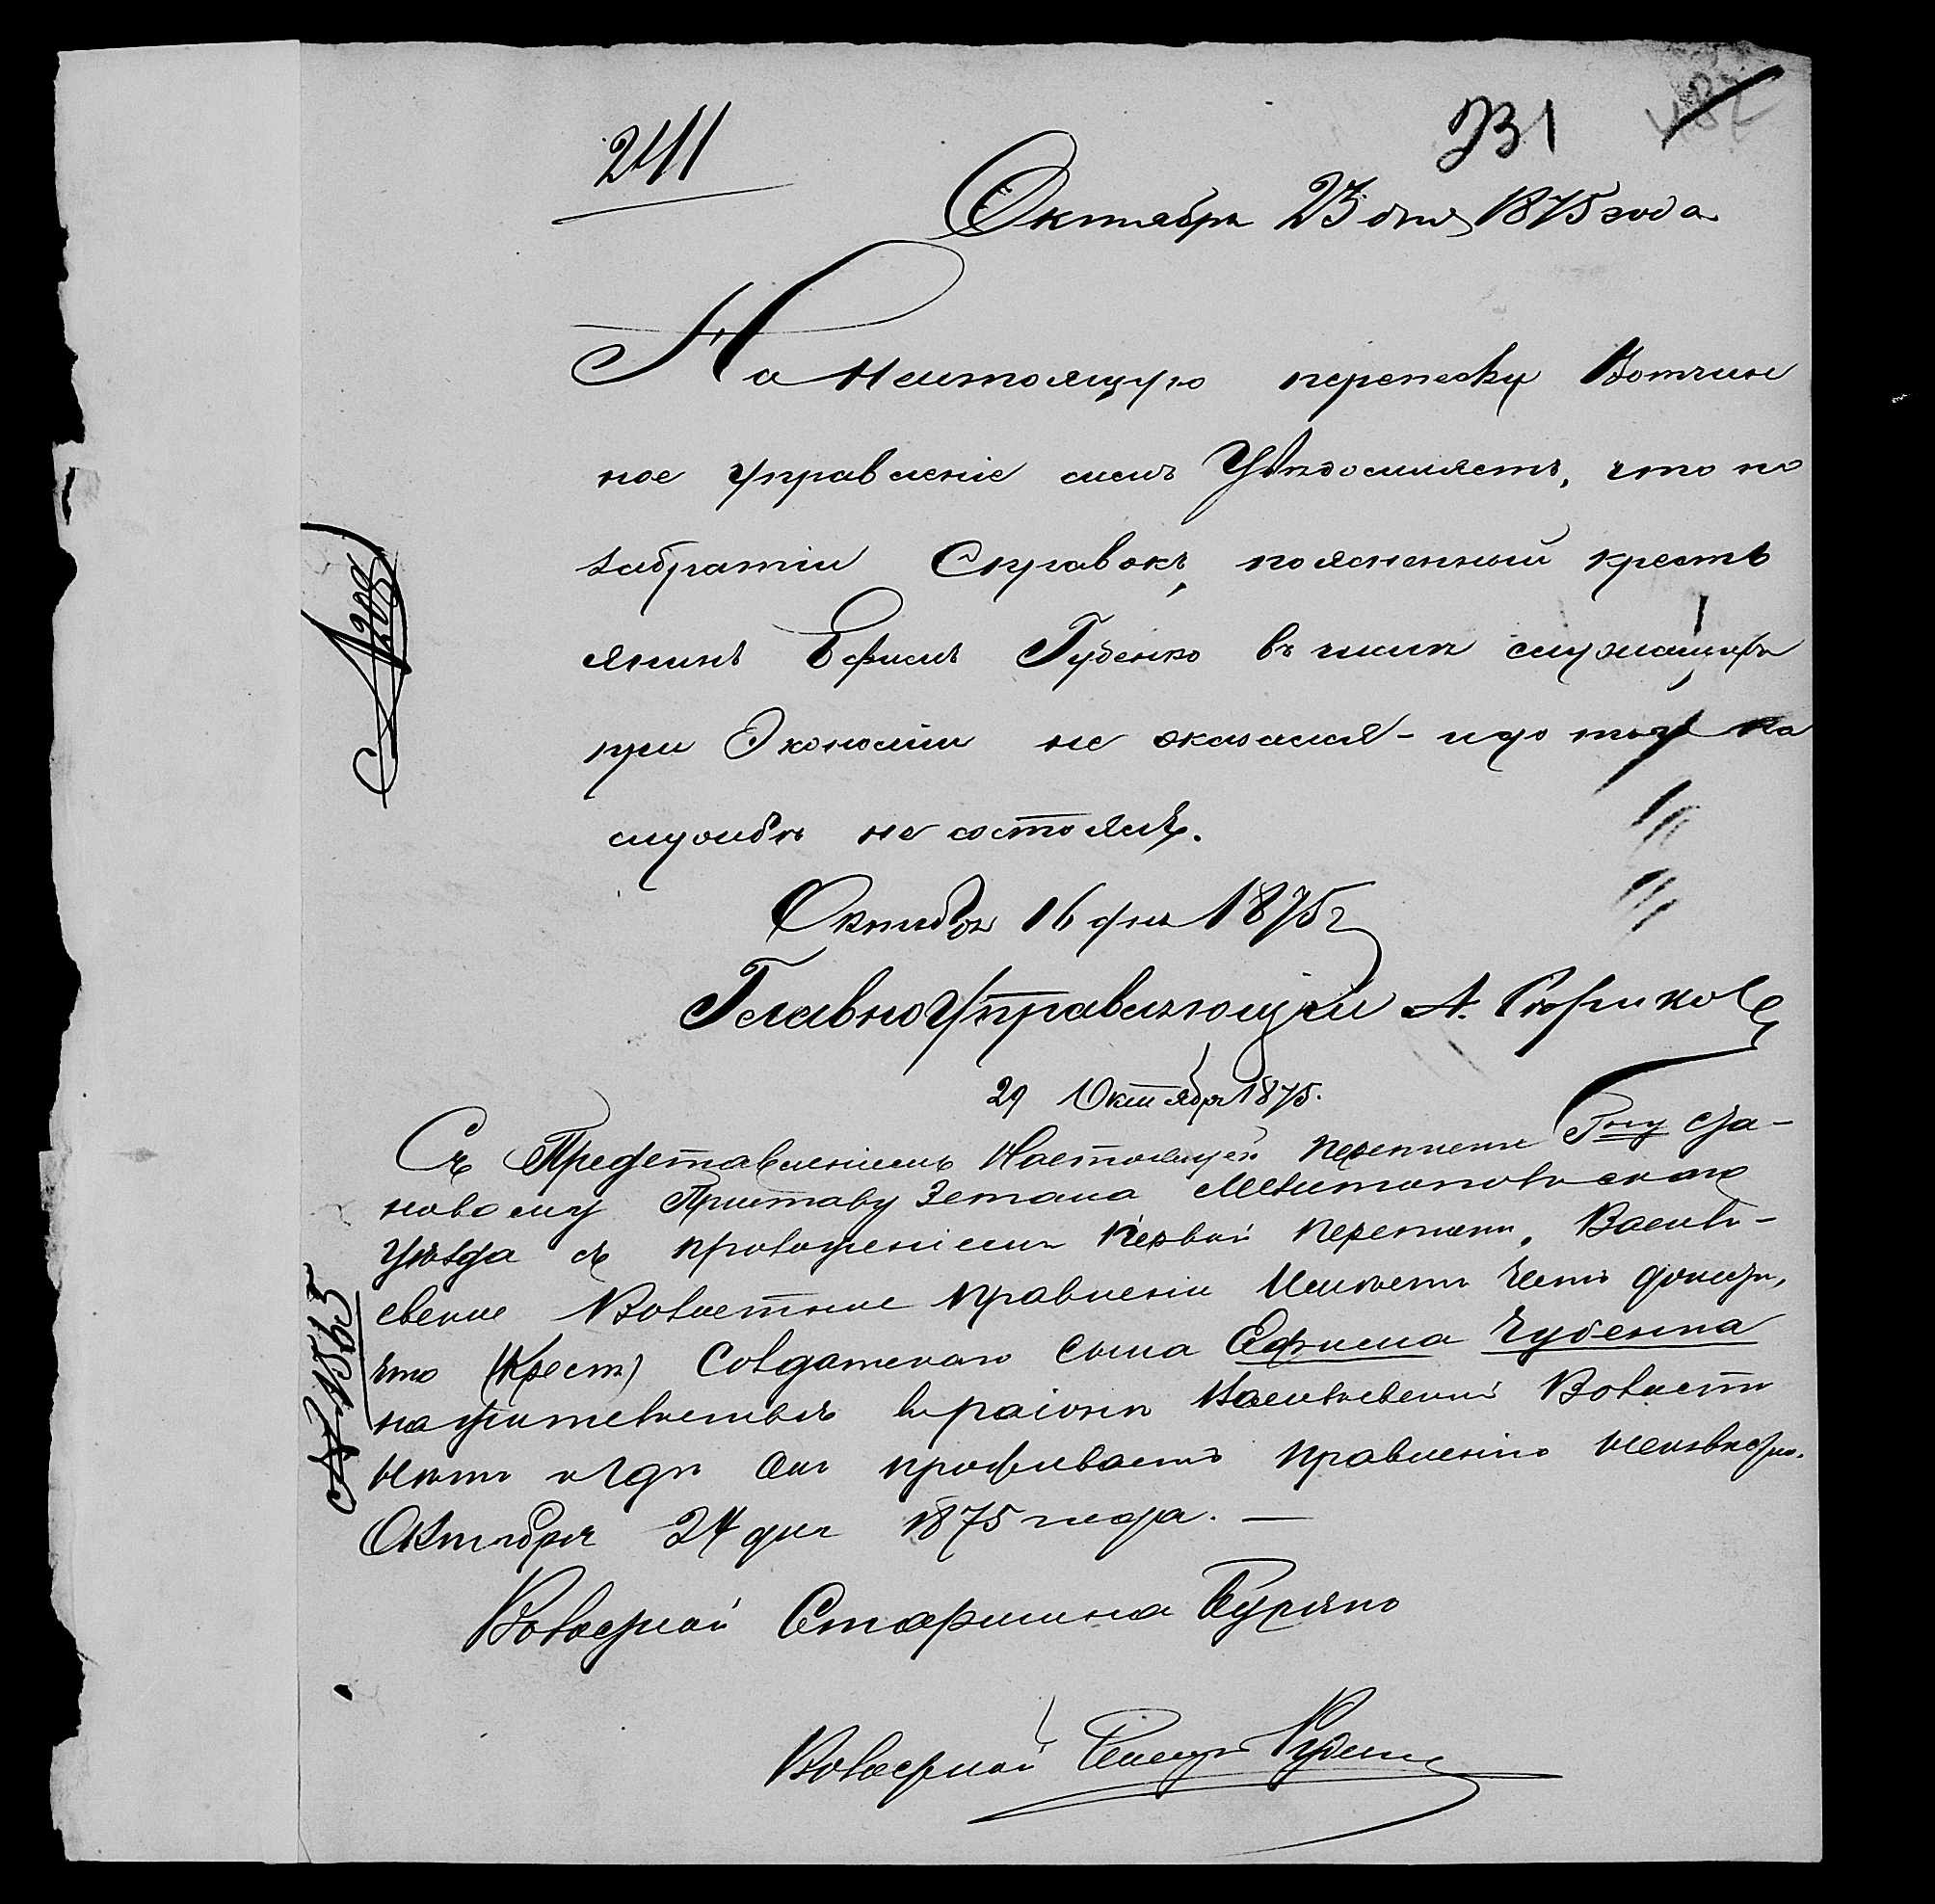 241
231
Октября 23 дня 1875 года
На настоящую переписку Вотчин
ное управленіе симъ Увѣдомляетъ, что по
забратіи Справокъ, поясненный кресть
янинъ Ефимъ Губенко въ числѣ служащихъ
при Экономіи не оказался - и до того на
службѣ не состоялъ.
Октября 16 дня 1875 г
Главноуправляющій А.
29 Октября 1875.
Съ Представленіемъ Настоящей переписки Гну Ста-
новому Приставу 3 стана Мелитопольскаго
Уѣзда съ приложеніемъ первой переписки, Василь-
евское Волостное правленіе Имѣетъ честь донести,
что (Крест) Солдатскаго сына Ефима Чубенка
на жительствѣ въ раіонѣ Васильевской Волости
Нѣтъ и гдѣ онъ проживаетъ правленію неизвѣстно.
Октября 24 дня 1875 года. —
Волостной Старшина
Волостной Писарь
№ 1565